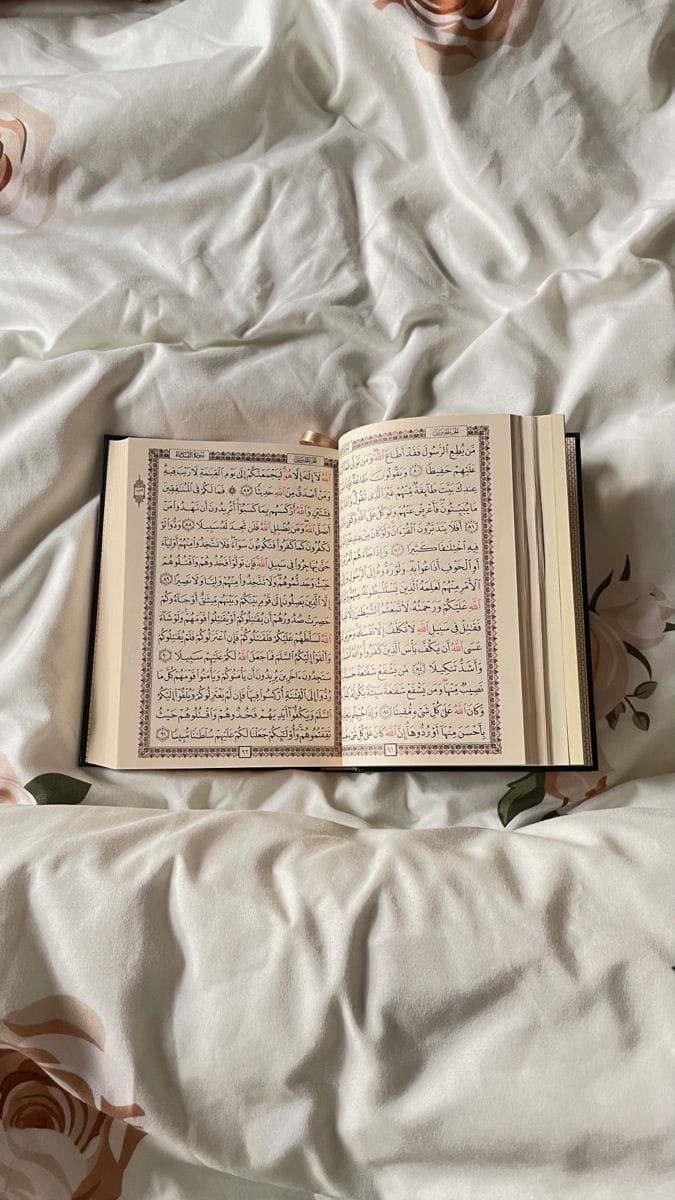 الجزء الخامس
مَّن يُطِعِ ٱلرَّسُولَ فَقَدْ أَطَاعَ ٱللَّهَ وَمَن تَوَلَّىٰ
عَلَيْهِمْ حَفِيظًا ٨٠ وَيَقُولُونَ طَاعَةٌ
عِندِكَ بَيَّتَ طَآئِفَةٌ مِّنْهُمْ غَيْرَ ٱلَّذِى تَقُولُ
مَا يُبَيِّتُونَ فَأَعْرِضْ عَنْهُمْ وَتَوَكَّلْ عَلَى ٱللَّهِ
٨١ أَفَلَا يَتَدَبَّرُونَ ٱلْقُرْءَانَ وَلَوْ كَانَ مِنْ
فِيهِ ٱخْتِلَٰفًا كَثِيرًا ٨٢ وَإِذَا جَآءَهُمْ
أَوِ ٱلْخَوْفِ أَذَاعُوا۟ بِهِۦ وَلَوْ رَدُّوهُ إِلَى
ٱلْأَمْرِ مِنْهُمْ لَعَلِمَهُ ٱلَّذِينَ يَسْتَنۢبِطُونَهُۥ
ٱللَّهِ عَلَيْكُمْ وَرَحْمَتُهُۥ لَٱتَّبَعْتُمُ ٱلشَّيْطَٰنَ
فَقَٰتِلْ فِى سَبِيلِ ٱللَّهِ لَا تُكَلَّفُ إِلَّا نَفْسَكَ
عَسَى ٱللَّهُ أَن يَكُفَّ بَأْسَ ٱلَّذِينَ كَفَرُوا۟ وَٱللَّهُ
وَأَشَدُّ تَنكِيلًا ٨٤ مَّن يَشْفَعْ شَفَٰعَةً
نَصِيبٌ مِّنْهَا وَمَن يَشْفَعْ شَفَٰعَةً سَيِّئَةً يَكُن لَّهُۥ
وَكَانَ ٱللَّهُ عَلَىٰ كُلِّ شَىْءٍ مُّقِيتًا ٨٥ وَإِذَا حُيِّيتُم
بِأَحْسَنَ مِنْهَآ أَوْ رُدُّوهَآ إِنَّ ٱللَّهَ كَانَ عَلَىٰ كُلِّ شَىْءٍ
٩١
الجزء الخامس سورة النساء
ٱللَّهُ لَآ إِلَٰهَ إِلَّا هُوَ لَيَجْمَعَنَّكُمْ إِلَىٰ يَوْمِ ٱلْقِيَٰمَةِ لَا رَيْبَ فِيهِ
وَمَنْ أَصْدَقُ مِنَ ٱللَّهِ حَدِيثًا ٨٧ ۞ فَمَا لَكُمْ فِى ٱلْمُنَٰفِقِينَ
فِئَتَيْنِ وَٱللَّهُ أَرْكَسَهُم بِمَا كَسَبُوٓا۟ أَتُرِيدُونَ أَن تَهْدُوا۟ مَنْ
أَضَلَّ ٱللَّهُ وَمَن يُضْلِلِ ٱللَّهُ فَلَن تَجِدَ لَهُۥ سَبِيلًا ٨٨ وَدُّوا۟ لَوْ
تَكْفُرُونَ كَمَا كَفَرُوا۟ فَتَكُونُونَ سَوَآءً فَلَا تَتَّخِذُوا۟ مِنْهُمْ أَوْلِيَآءَ
حَتَّىٰ يُهَاجِرُوا۟ فِى سَبِيلِ ٱللَّهِ فَإِن تَوَلَّوْا۟ فَخُذُوهُمْ وَٱقْتُلُوهُمْ
حَيْثُ وَجَدتُّمُوهُمْ وَلَا تَتَّخِذُوا۟ مِنْهُمْ وَلِيًّا وَلَا نَصِيرًا ٨٩
إِلَّا ٱلَّذِينَ يَصِلُونَ إِلَىٰ قَوْمٍۭ بَيْنَكُمْ وَبَيْنَهُم مِّيثَٰقٌ أَوْ جَآءُوكُمْ
حَصِرَتْ صُدُورُهُمْ أَن يُقَٰتِلُوكُمْ أَوْ يُقَٰتِلُوا۟ قَوْمَهُمْ وَلَوْ شَآءَ
ٱللَّهُ لَسَلَّطَهُمْ عَلَيْكُمْ فَلَقَٰتَلُوكُمْ فَإِنِ ٱعْتَزَلُوكُمْ فَلَمْ يُقَٰتِلُوكُمْ
وَأَلْقَوْا۟ إِلَيْكُمُ ٱلسَّلَمَ فَمَا جَعَلَ ٱللَّهُ لَكُمْ عَلَيْهِمْ سَبِيلًا ٩٠
سَتَجِدُونَ ءَاخَرِينَ يُرِيدُونَ أَن يَأْمَنُوكُمْ وَيَأْمَنُوا۟ قَوْمَهُمْ كُلَّ مَا
رُدُّوٓا۟ إِلَى ٱلْفِتْنَةِ أُرْكِسُوا۟ فِيهَا فَإِن لَّمْ يَعْتَزِلُوكُمْ وَيُلْقُوٓا۟ إِلَيْكُمُ
ٱلسَّلَمَ وَيَكُفُّوٓا۟ أَيْدِيَهُمْ فَخُذُوهُمْ وَٱقْتُلُوهُمْ حَيْثُ
ثَقِفْتُمُوهُمْ وَأُو۟لَٰٓئِكُمْ جَعَلْنَا لَكُمْ عَلَيْهِمْ سُلْطَٰنًا مُّبِينًا ٩١
٩٢